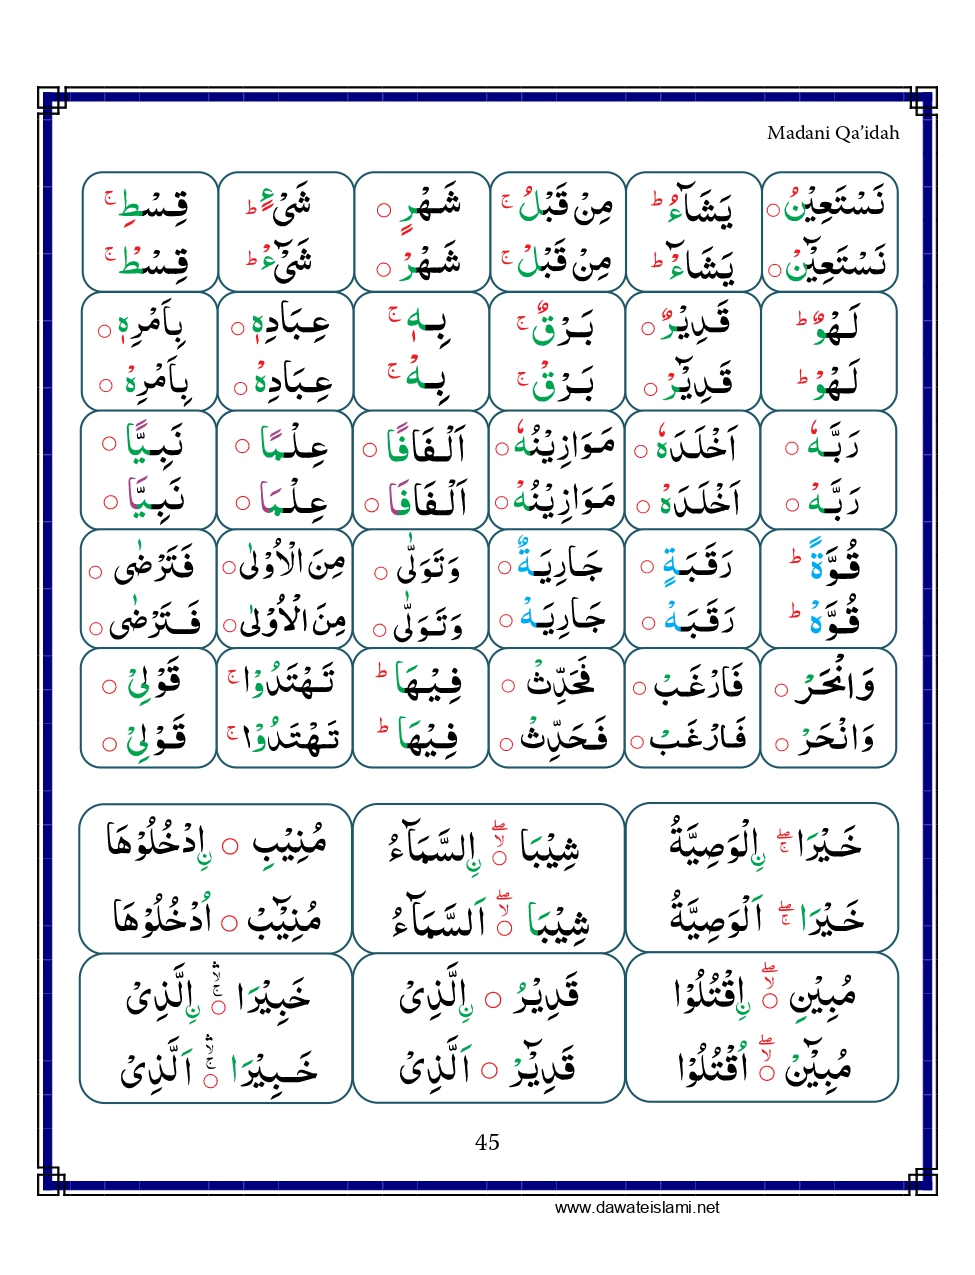 Madani Qa’idah
نَسْتَعِيْنُ ○ يَشَآءُ ؕ مِنْ قَبْلُ ۚ شَهْرٍ ○ شَیْءٍ ؕ قِسْطِ ۚ
نَسْتَعِيْٓنْ ○ يَشَآءْ ؕ مِنْ قَبْلْ ۚ شَهْرْ ○ شَیْٓءْ ؕ قِسْطْ ۚ
لَهْوٌ ؕ قَدِيْرٌ ○ بَرْقٌ ۚ بِهٖ ۚ عِبَادِهٖ ○ بِاَمْرِهٖ ○
لَهْوْ ؕ قَدِيْٓرْ ○ بَرْقْ ۚ بِهْ ۚ عِبَادِهْ ○ بِاَمْرِهْ ○
رَبَّهٗ ○ اَخْلَدَهٗ ○ مَوَازِيْنُهٗ ○ اَلْفَافًا ○ عِلْمًا ○ نَبِيًّا ○
رَبَّهْ ○ اَخْلَدَهْ ○ مَوَازِيْنُهْ ○ اَلْفَافَا ○ عِلْمَا ○ نَبِيَّا ○
قُوَّةً ؕ رَقَبَةٍ ○ جَارِيَةٌ ○ وَتَوَلّٰى ○ مِنَ الْاُوْلٰى ○ فَتَرْضٰى ○
قُوَّهْ ؕ رَقَبَهْ ○ جَارِيَهْ ○ وَتَوَلّٰى ○ مِنَ الْاُوْلٰى ○ فَتَرْضٰى ○
وَانْحَرْ ○ فَارْغَبْ ○ فَحَدِّثْ ○ فِيْهَا ؕ تَهْتَدُوْا ۚ قَوْلِیْ ○
وَانْحَرْ ○ فَارْغَبْ ○ فَحَدِّثْ ○ فِيْهَا ؕ تَهْتَدُوْا ۚ قَوْلِیْ ○
خَيْرَا ۖۚ نِ الْوَصِيَّةُ شِيْبَا ○ۙۖ نِ السَّمَآءُ مُنِيْبِ ○ نِ ادْخُلُوْهَا
خَيْرَا ۖۚ اَلْوَصِيَّةُ شِيْبَا ○ۙۖ اَلسَّمَآءُ مُنِيْٓبْ ○ اُدْخُلُوْهَا
مُبِيْنِ ○ۙۖ نِ اقْتُلُوْا قَدِيْرُ ○ نِ الَّذِیْ خَبِيْرَا ○ۚۛۙ نِ الَّذِیْ
مُبِيْٓنْ ○ۙۖ اُقْتُلُوْا قَدِيْٓرْ ○ اَلَّذِیْ خَبِيْرَا ○ۚۛۙ اَلَّذِیْ
45
www.dawateislami.net